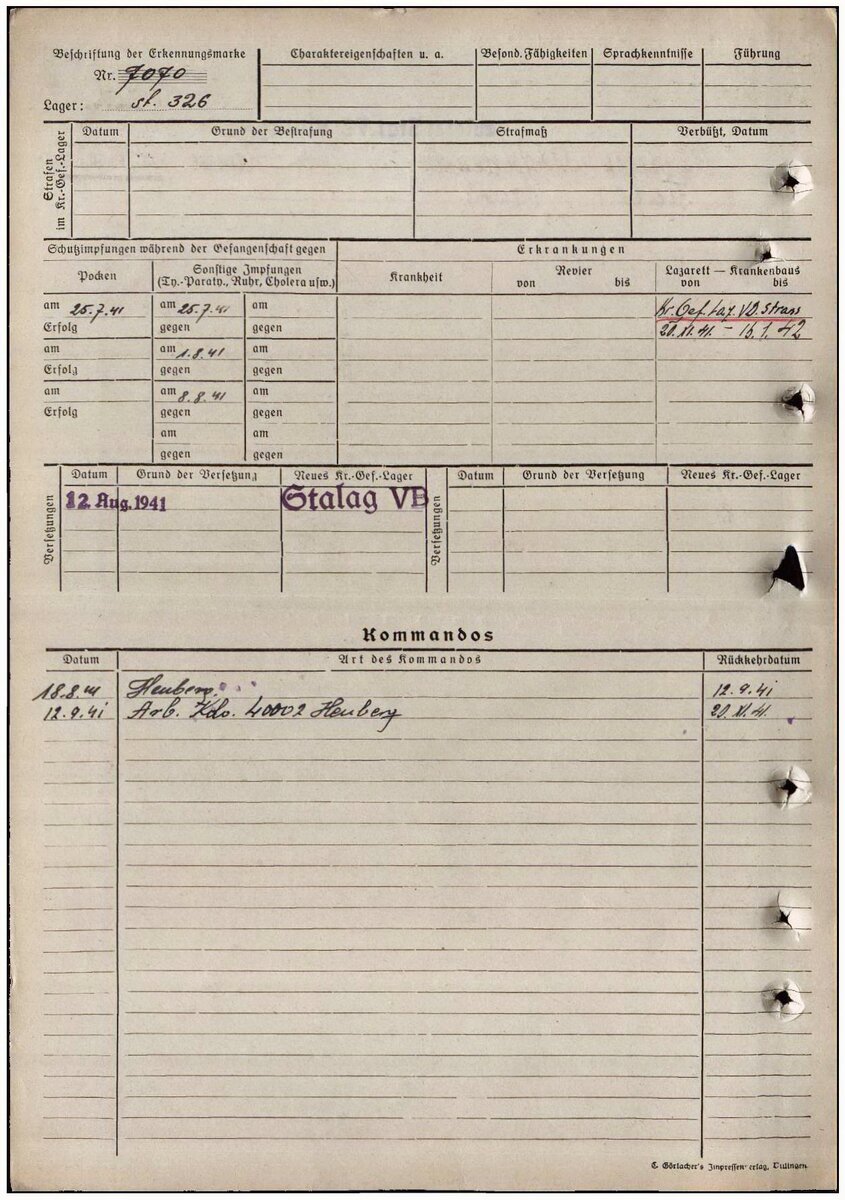 Beschriftung der Erkennungsmarke
Nr. 7070
Lager: st. 326
Charaktereigenschaften u. a.
Besond. Fähigkeiten
Sprachkenntnisse
Führung
Strafen im Kr.-Gef.-Lager
Datum
Grund der Bestrafung
Strafmaß
Verbüßt, Datum
Schutzimpfungen während der Gefangenschaft gegen
Erkrankungen
Pocken
Sonstige Impfungen
(Ty.-Paraty., Ruhr, Cholera usw.)
Krankheit
Revier
von bis
Lazarett — Krankenhaus
von bis
am 25.7.41 am 25.7.41 am
Kr. Gef. Laz. VD. Strass
Erfolg gegen gegen
20.XI.41. – 15.1.42
am am 1.8.41 am
Erfolg gegen gegen
am am 8.8.41 am
Erfolg gegen gegen
am am
gegen gegen
Versetzungen
Datum Grund der Versetzung Neues Kr.-Gef.-Lager
12. Aug. 1941 Stalag VB
Versetzungen
Datum Grund der Versetzung Neues Kr.-Gef.-Lager
Kommandos
Datum Art des Kommandos Rückkehrdatum
18.8.41 Heuberg. 12.9.41
12.9.41 Arb. Kdo. 40002 Heuberg 20.XI.41.
C. Görlacher's Impressen-erlag,